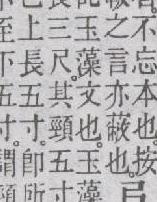 不忘本也按
之言亦蔽也
玉藻。文也。玉藻
三尺。其頸五寸
上長五寸。卽所
至下五寸。謂頸